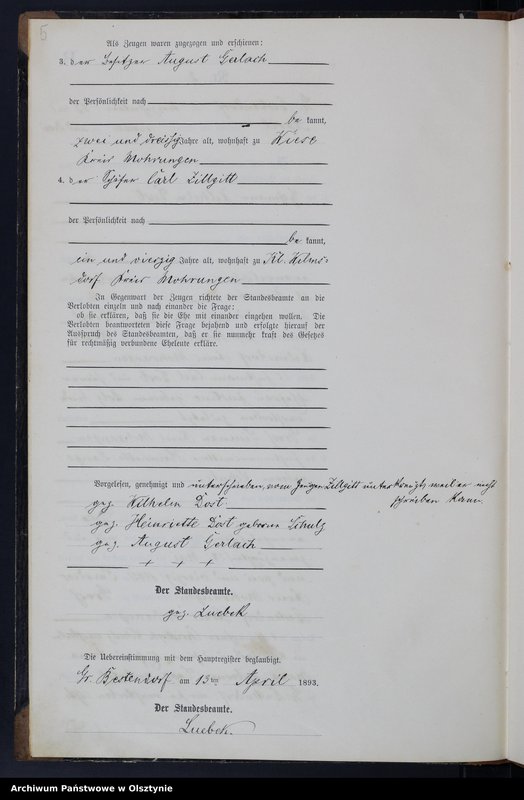 5
Als Zeugen waren zugezogen und erschienen:
3. der Besitzer August Gerlach
der Persönlichkeit nach
be kannt,
zwei und dreissig Jahre alt, wohnhaft zu Wiese
Kreis Mohrungen
4. der Schäfer Carl Zillgitt
der Persönlichkeit nach
be kannt,
ein und vierzig Jahre alt, wohnhaft zu Kl. Wilms-
dorf Kreis Mohrungen
In Gegenwart der Zeugen richtete der Standesbeamte an die
Verlobten einzeln und nach einander die Frage:
ob sie erklären, daß sie die Ehe mit einander eingehen wollen. Die
Verlobten beantworteten diese Frage bejahend und erfolgte hierauf der
Ausspruch des Standesbeamten, daß er sie nunmehr kraft des Gesetzes
für rechtmäßig verbundene Eheleute erkläre.
Vorgelesen, genehmigt und unterschrieben, vom Zeugen Zillgitt unterkreuzt, weil er nicht
schreiben kann.
gez. Wilhelm Dost
gez. Heinriette Dost geborene Schulz
gez. August Gerlach
+ + +
Der Standesbeamte.
gez. Luebek
Die Uebereinstimmung mit dem Hauptregister beglaubigt.
Gr. Bestendorf am 13ten April 1893.
Der Standesbeamte.
Luebek.
Archiwum Państwowe w Olsztynie